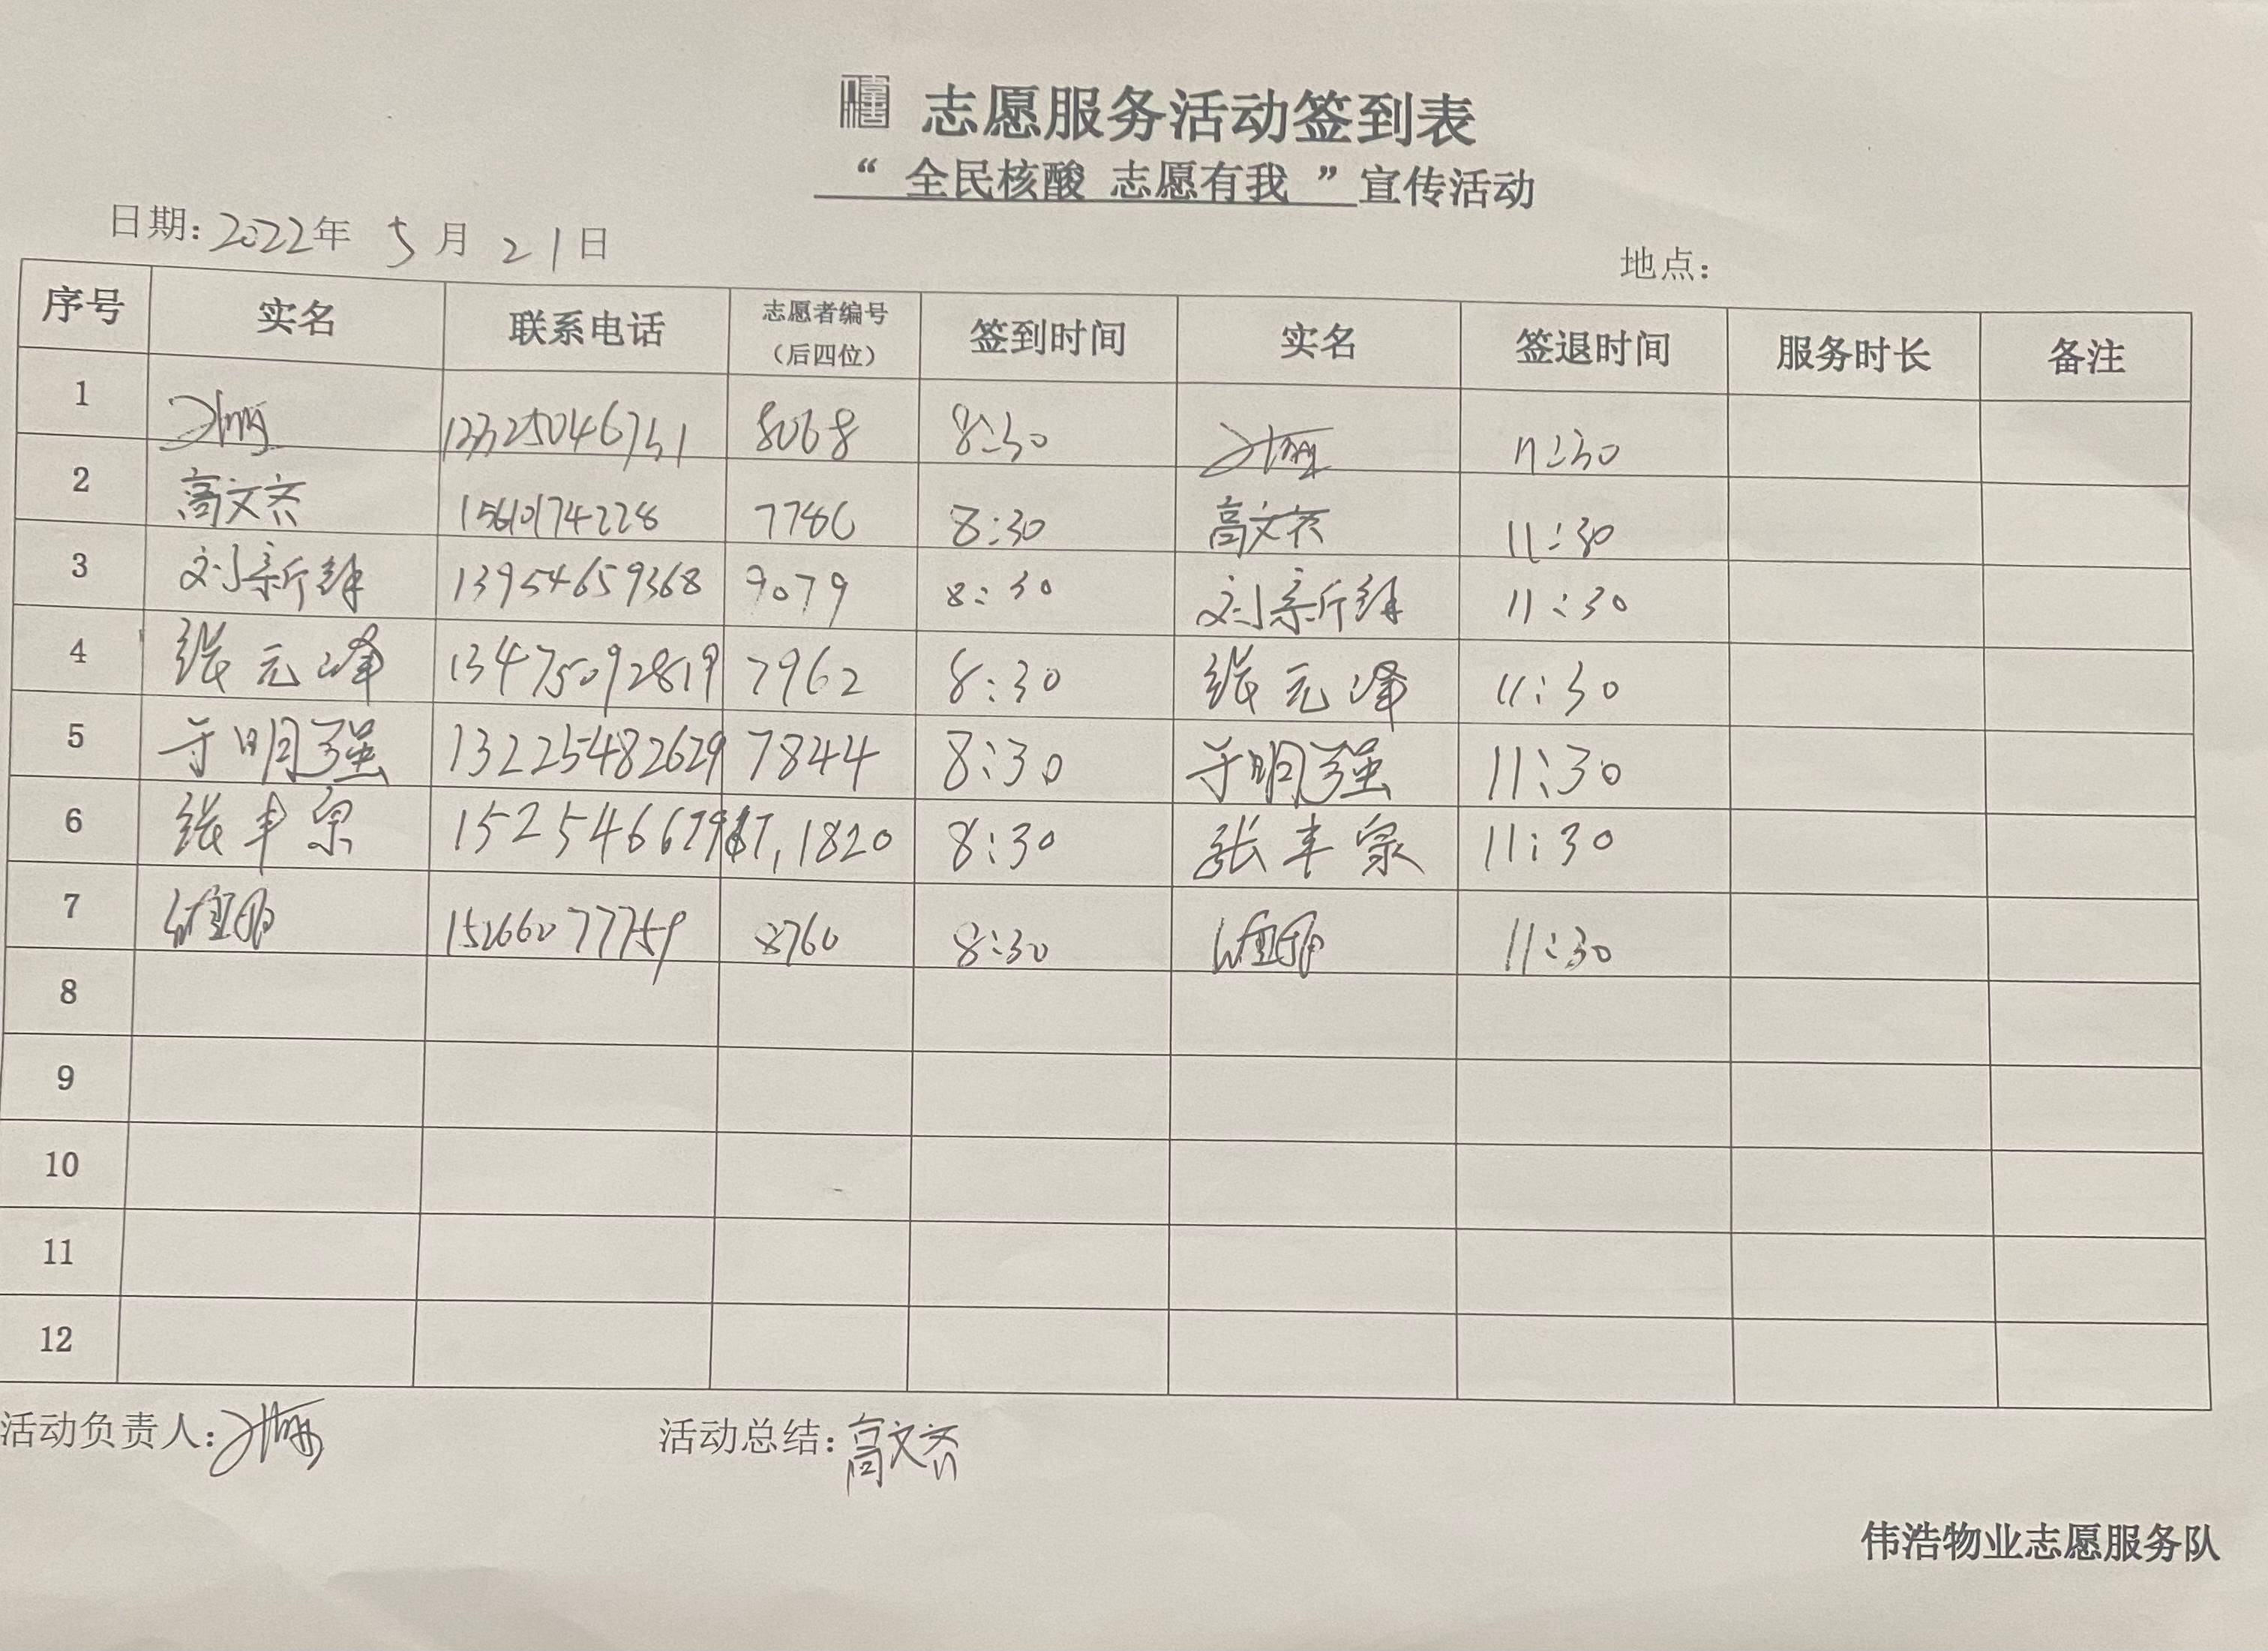 志愿服务活动签到表
“ 全民核酸 志愿有我 ”宣传活动
日期: 2022年 5 月 21日 地点:
序号 实名 联系电话 志愿者编号(后四位) 签到时间 实名 签退时间 服务时长 备注
1 8068 8:30 11:30
2 高文齐 15610174228 7786 8:30 高文齐 11:30
3 刘新 13954659368 9079 8:30 刘新 11:30
4 张元峰 13475092819 7962 8:30 张元峰 11:30
5 于明强 13225482629 7844 8:30 于明强 11:30
6 张丰泉 1820 8:30 张丰泉 11:30
7 15266077759 8760 8:30 11:30
8
9
10
11
12
活动负责人: 活动总结: 高文齐
伟浩物业志愿服务队